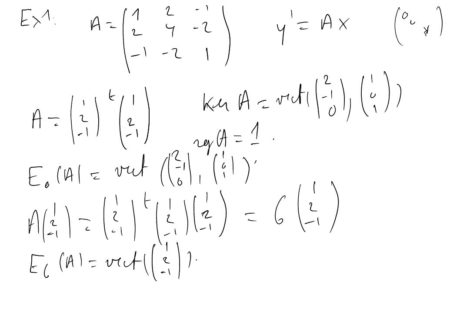 Ex1. A = (1 2 -1 / 2 4 -2 / -1 -2 1) y' = Ax (0 0 *)
A = (1 / 2 / -1) t(1 / 2 / -1) Ker A = vect((2 / -1 / 0), (1 / 0 / 1))
rg A = 1.
E₀(A) = vect((2 / -1 / 0), (1 / 0 / 1)).
A(1 / 2 / -1) = (1 / 2 / -1) t(1 / 2 / -1)(1 / 2 / -1) = 6(1 / 2 / -1)
E₆(A) = vect((1 / 2 / -1)).